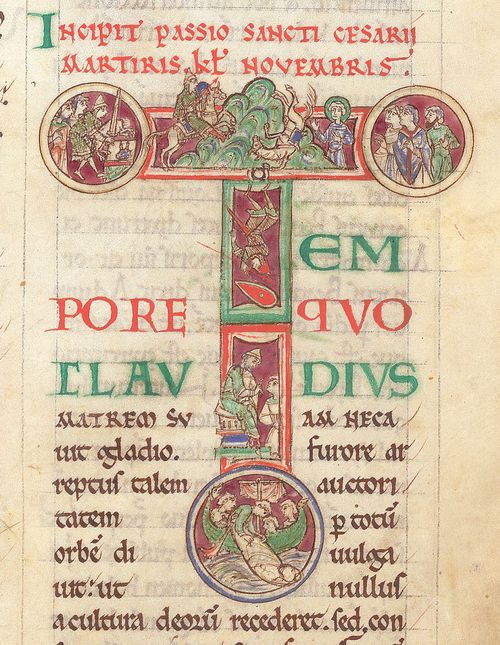 INCIPIT PASSIO SANCTI CESARII
MARTIRIS. kł NOVEMBRIS.
TEM
PORE QVO
CLAV DIVS
MATREM SV AM NECA
uit gladio. furore ar
reptus talem auctori
tatem ꝑ totū
orbē di uulga
uit: ut nullus
a cultura deorū recederet. sed. con